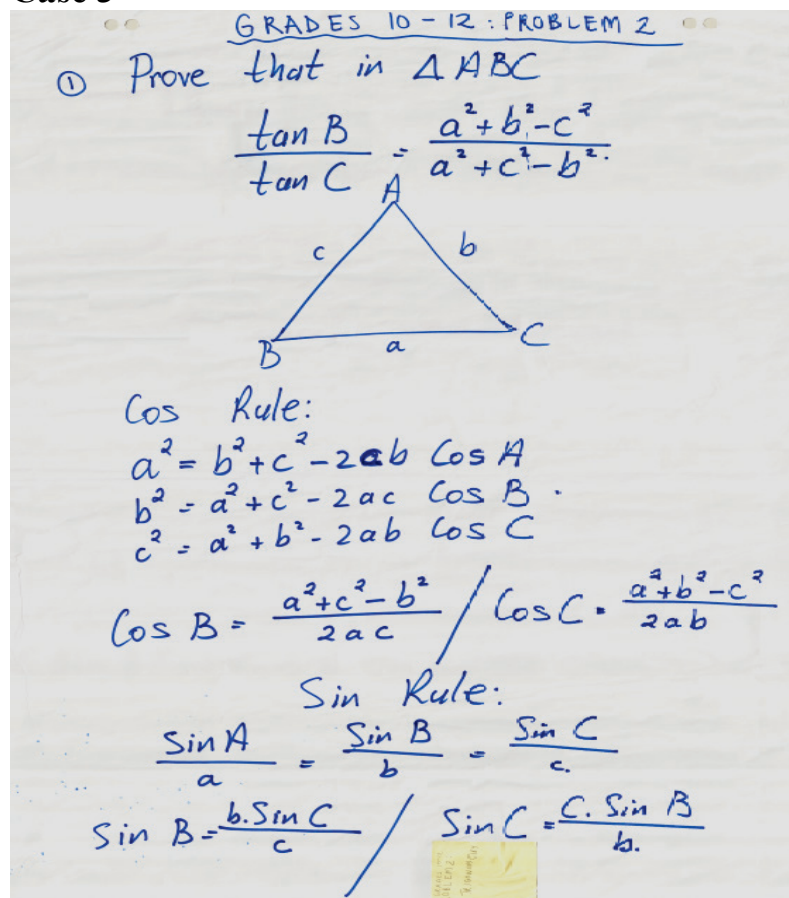 Case 3
GRADES 10 - 12 : PROBLEM 2
① Prove that in Δ ABC
tan B / tan C = a² + b² - c² / a² + c² - b².
A
c b
B a C
Cos Rule:
a² = b² + c² - 2cb Cos A
b² = a² + c² - 2ac Cos B .
c² = a² + b² - 2ab Cos C
Cos B = a² + c² - b² / 2ac / Cos C = a² + b² - c² / 2ab
Sin Rule:
Sin A / a = Sin B / b = Sin C / c.
Sin B = b. Sin C / c / Sin C = C. Sin B / b.